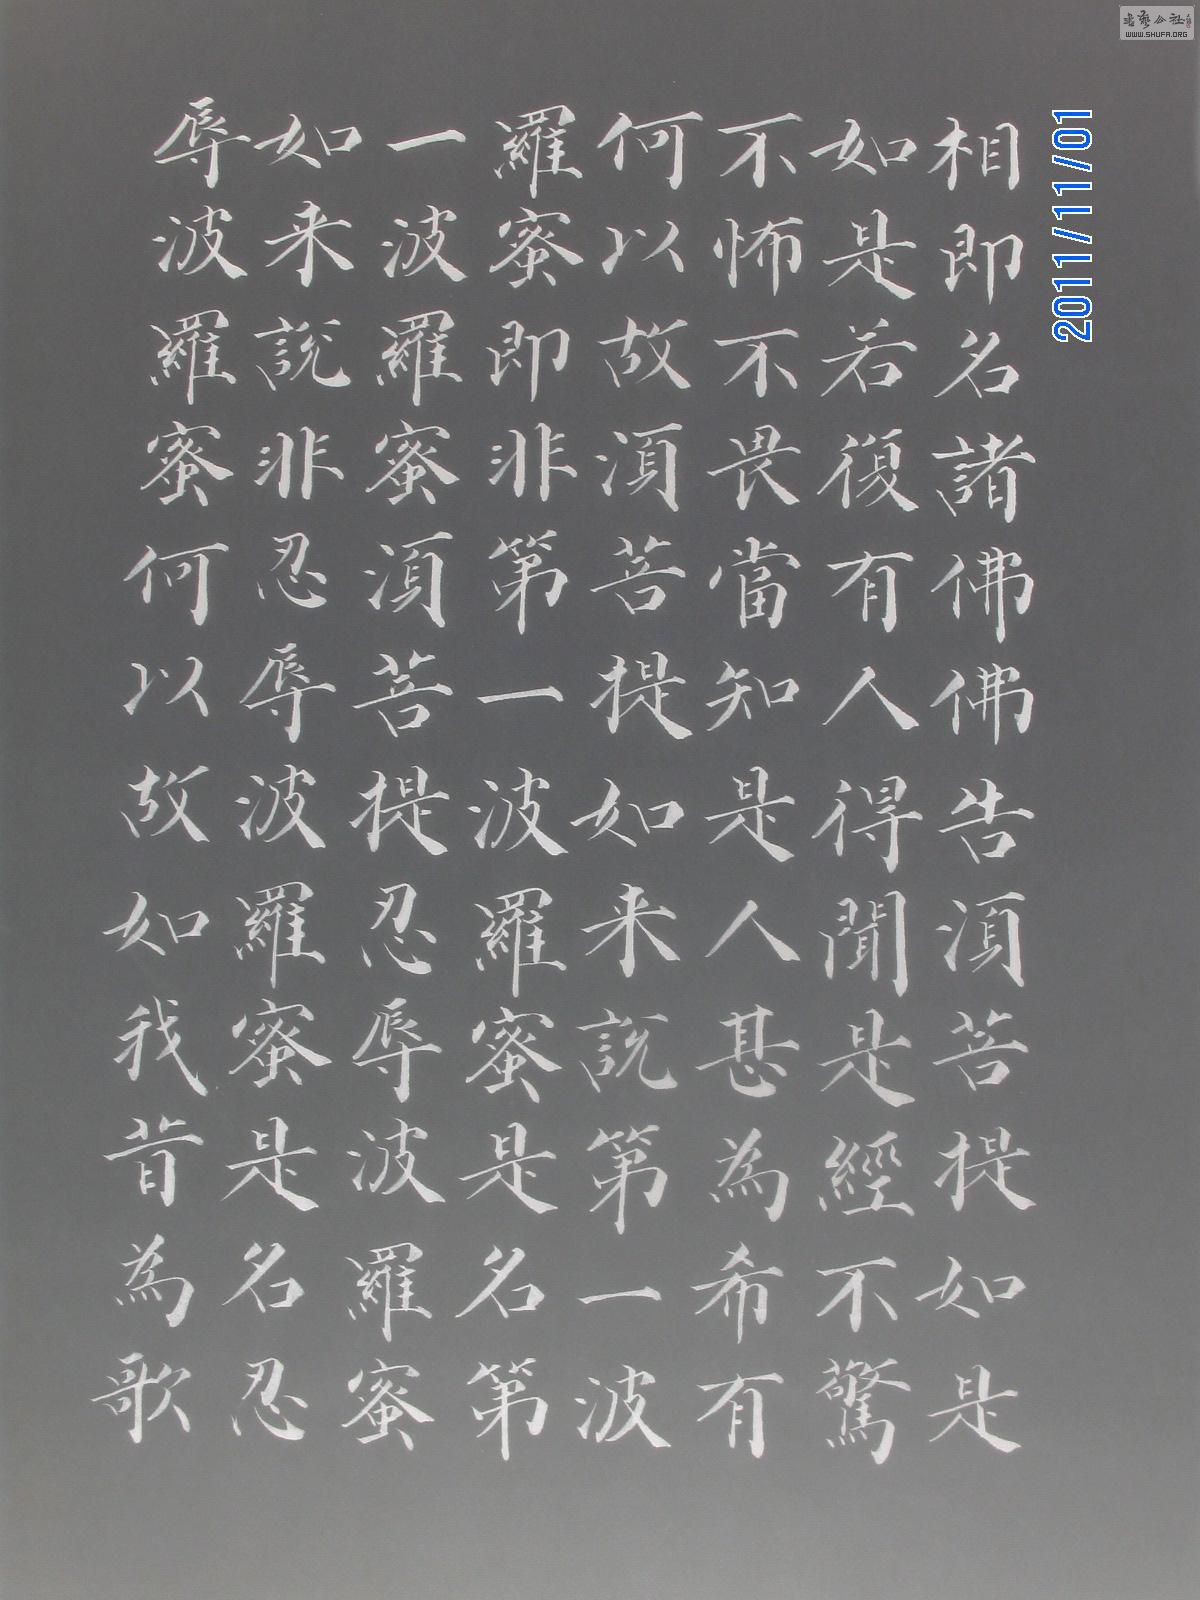 相即名諸佛佛告須菩提如是
如是若復有人得聞是經不驚
不怖不畏當知是人甚為希有
何以故須菩提如来說第一波
羅蜜即非第一波羅蜜是名第
一波羅蜜須菩提忍辱波羅蜜
如来說非忍辱波羅蜜是名忍
辱波羅蜜何以故如我昔為歌
2011/11/01
WWW.SHUFA.ORG